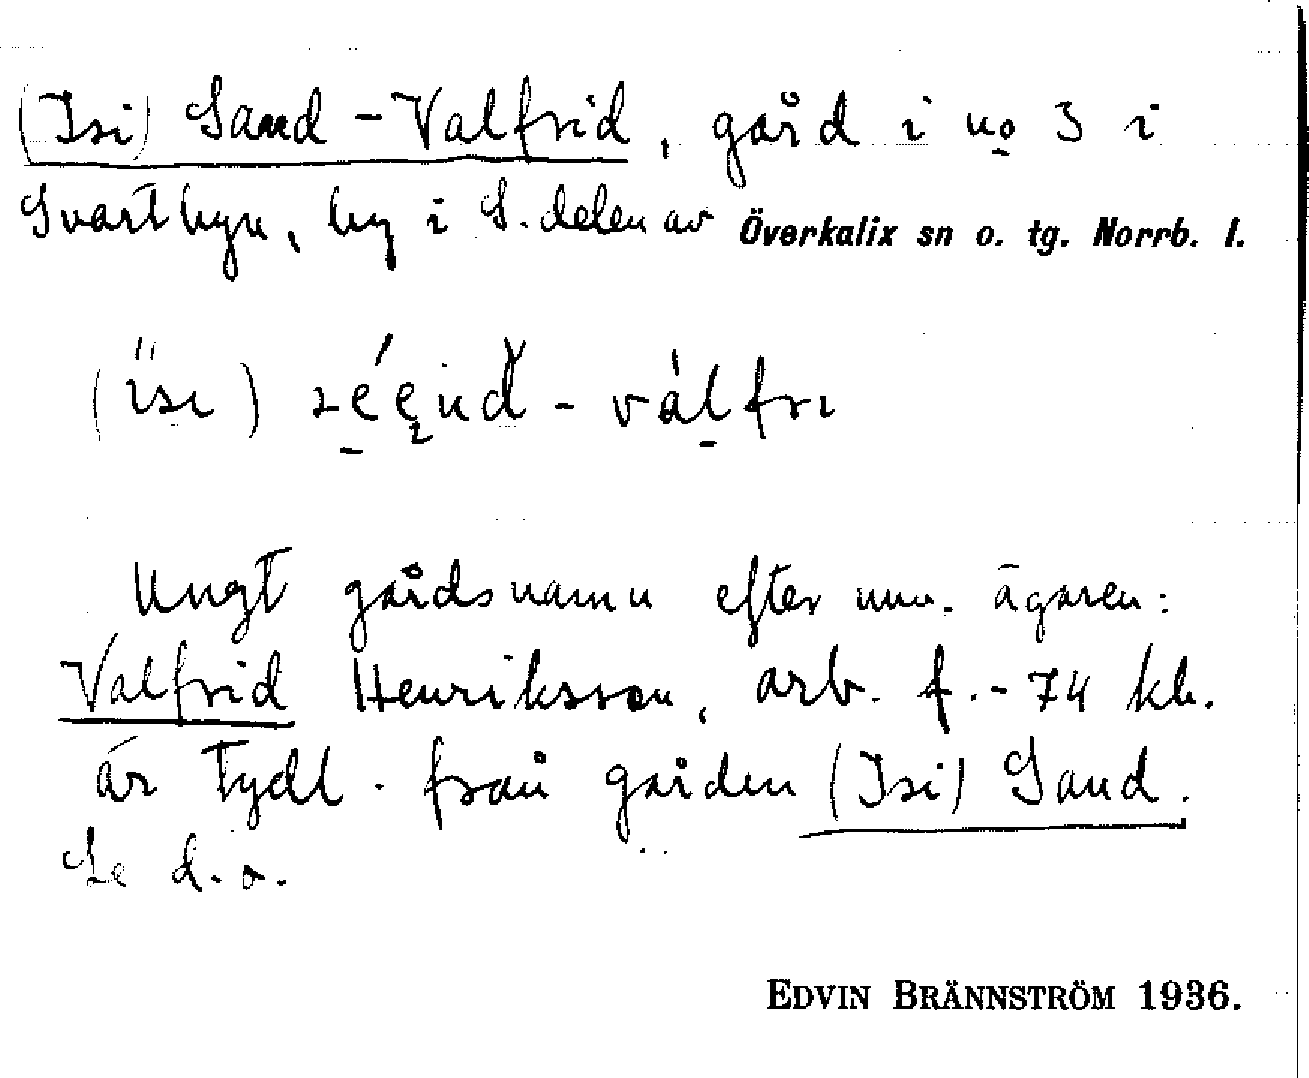 (Isi) Sand-Valfrid, gård i no 3 i
Svartbyn, by i S. delen av Överkalix sn o. tg. Norrb. l.
Ungt gårdsnamn efter nuv. ägaren:
Valfrid Henriksson, arb. f. -74 kh.
är tydl. från gården (Isi) Sand.
Se d. o.
EDVIN BRÄNNSTRÖM 1936.